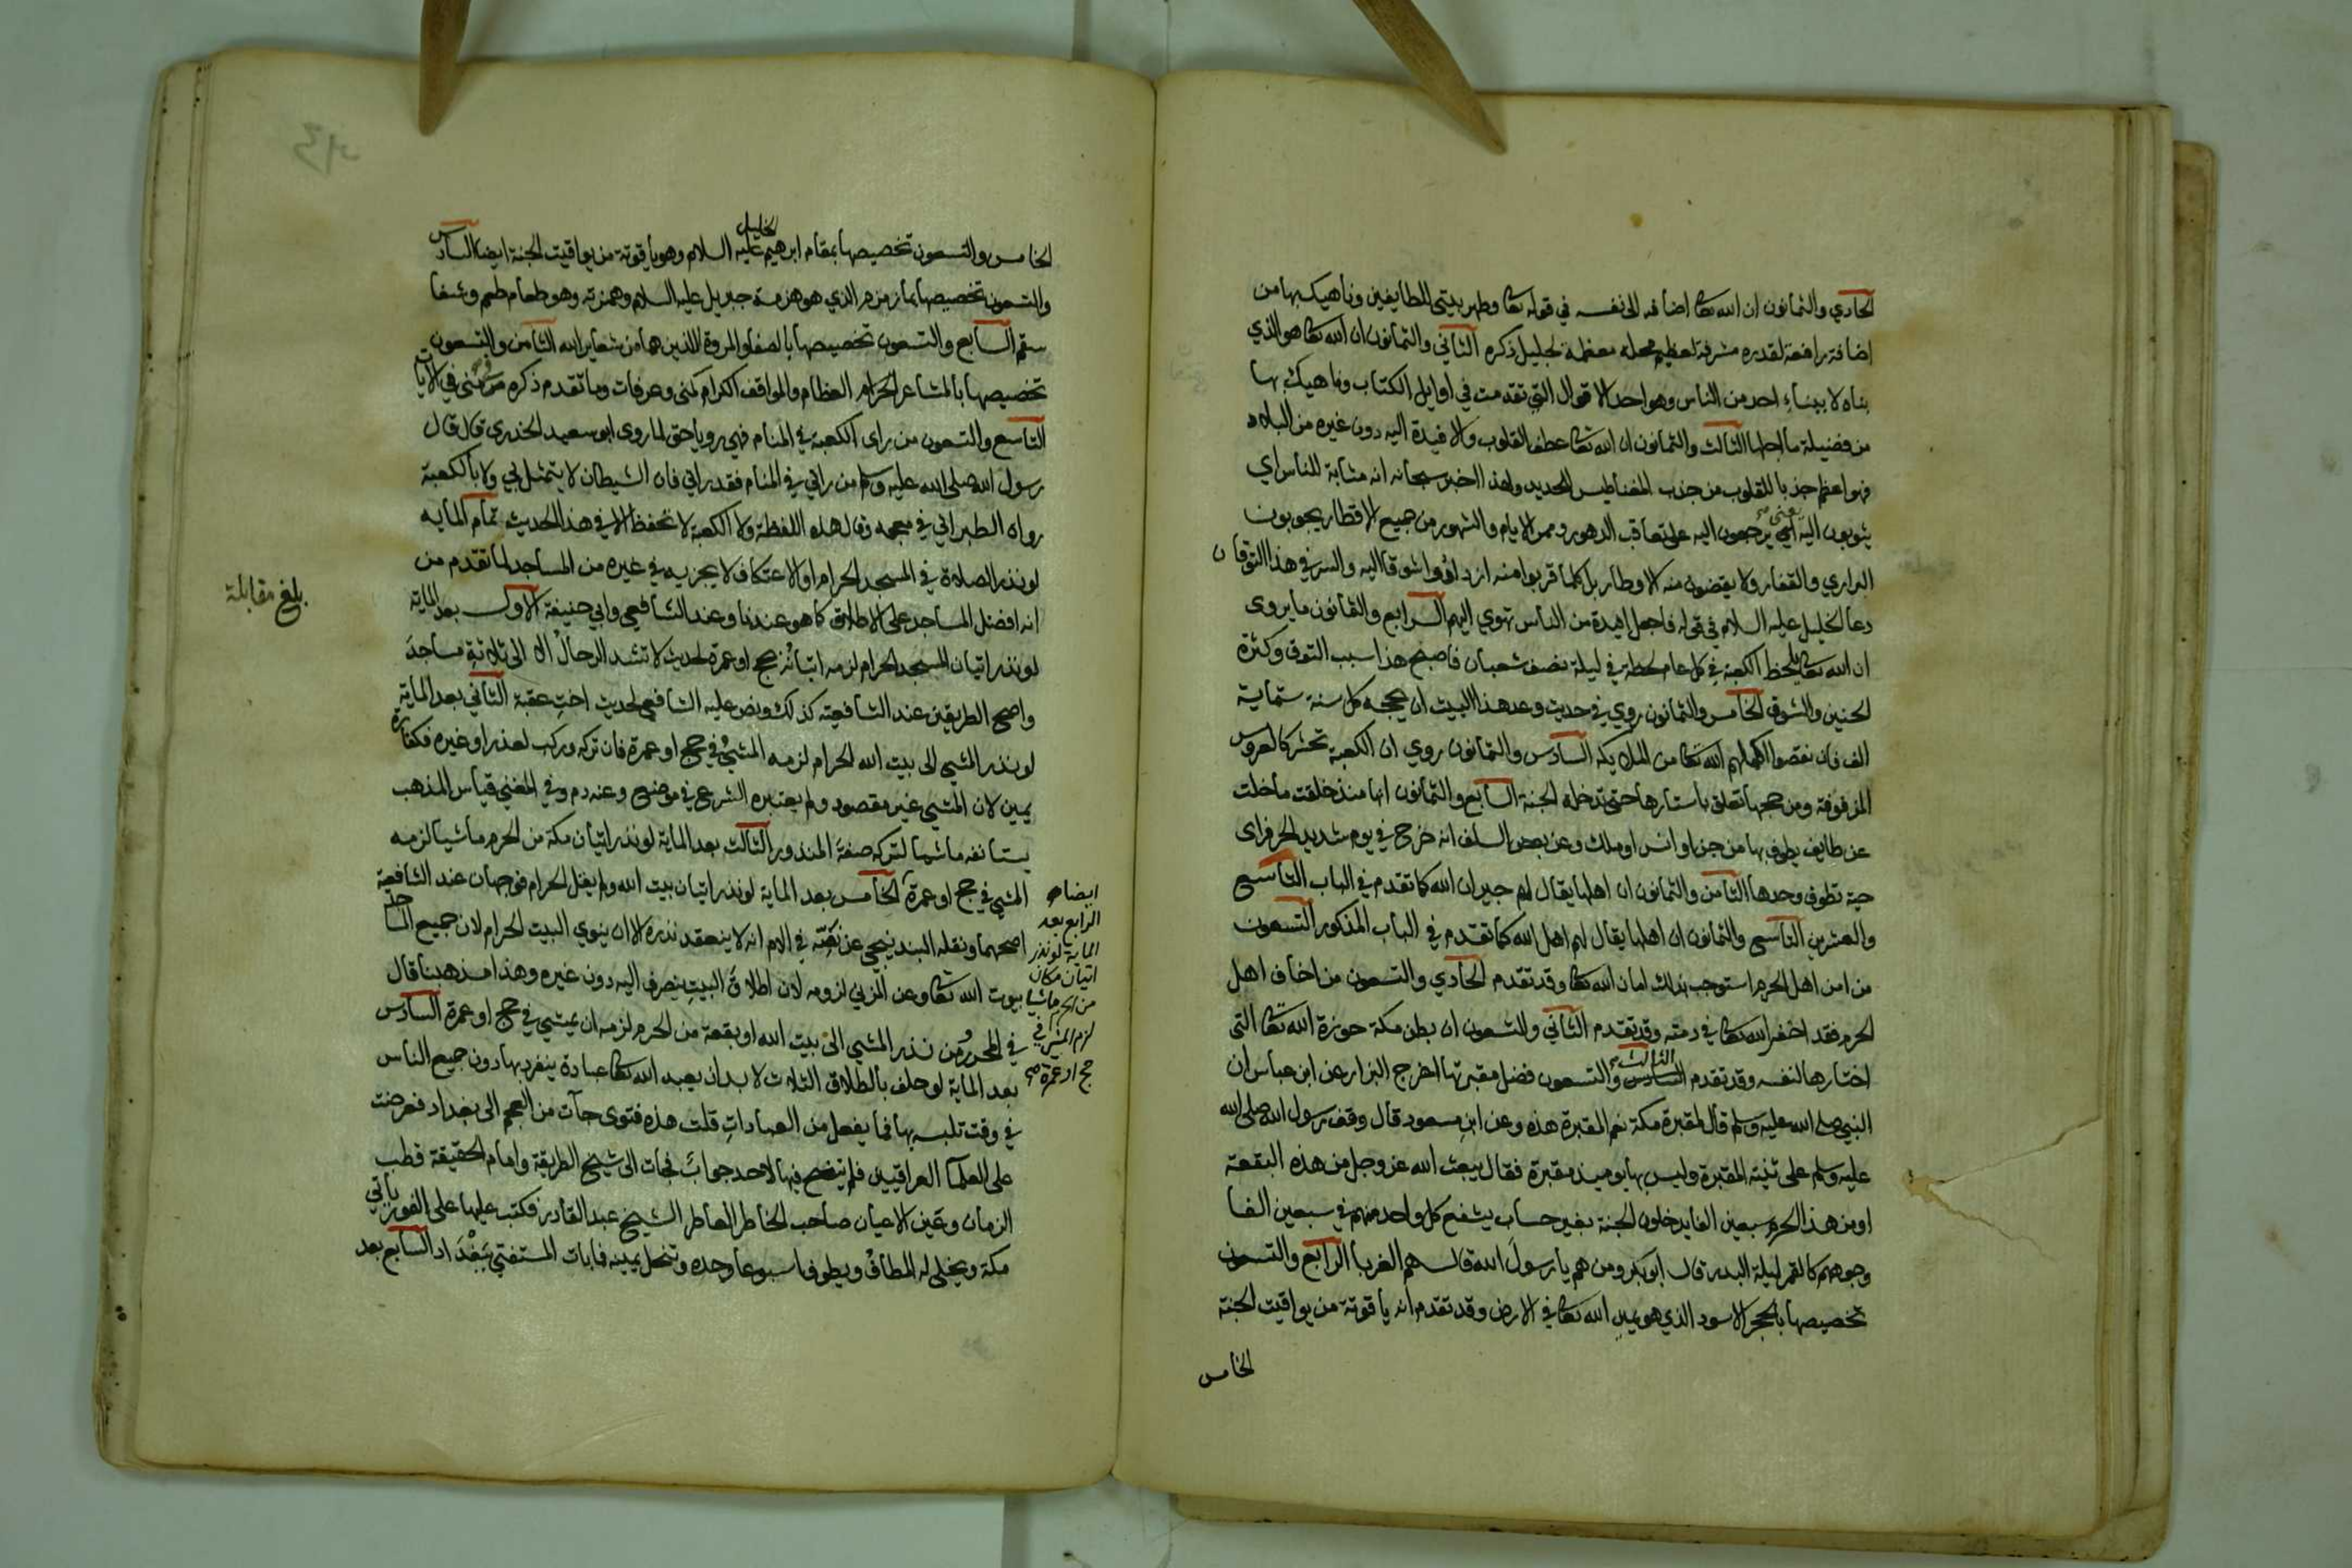 الحادي والثمانون ان الله تعا اضافه الى نفسه في قوله تعا وطهر بيتي للطايفين وناهيك بها من
اضافة رافعة لقدره مشرفة لعظيم محله معظمة لجليل ذكره الثاني والثمانون ان الله تعا هو الذي
بناه لا ببناء احد من الناس وهو احد الاقوال التي تقدمت في اوايل الكتاب وناهيك بها
من فضيلة ما اجلها الثالث والثمانون ان الله تعا عطف القلوب والافيدة اليه دون غيره من البلاد
فهو اعظم جذبا للقلوب من جذب المغناطيس للحديد ولهذا اخبر سبحانه انه مثابة للناس اي
يثوبون اليه يعني يرجعون اليه على تعاقب الدهور وممر الايام والشهور من جميع الاقطار يجوبون
البراري والقفار ولا يقضون منه الاوطار بل كلما قربوا منه ازدادوا شوقا اليه والسر في هذا التوقان
دعا الخليل عليه السلام في قوله فاجعل افيدة من الناس تهوي اليهم الرابع والثمانون ما يروى
ان الله تعا يلحظ الكعبة في كل عام لحظة في ليلة نصف شعبان فاصبح هذا سبب التوق وكثرة
الحنين والشوق الخامس والثمانون روي في حديث وعد هذا البيت ان يحجه كل سنة ستماية
الف فان نقصوا اكملهم الله تعا من الملايكة السادس والثمانون روي ان الكعبة تحشر كالعروس
المزفوفة ومن حجها تعلق باستارها حتى تدخله الجنة السابع والثمانون انها منذ خلقت ما خلت
عن طايف يطوف بها من جن او انس او ملك وعن بعض السلف انه خرج في يوم شديد الحر فراى
حية تطوف وحدها الثامن والثمانون ان اهلها يقال لهم جيران الله كما تقدم في الباب التاسع
والعشرين التاسع والثمانون ان اهلها يقال لهم اهل الله كما تقدم في الباب المذكور التسعون
من امن اهل الحرم استوجب بذلك امان الله تعا وقد تقدم الحادي والتسعون من اخاف اهل
الحرم فقد اخفر الله تعا في ذمته وقد تقدم الثاني والتسعون ان بطن مكة حوزة الله تعا التي
اختارها لنفسه وقد تقدم الثالث والتسعون فضل مقبرتها اخرج البزار عن ابن عباس ان
النبي صلى الله عليه وسلم قال لمقبرة مكة نعم المقبرة هذه وعن ابن مسعود قال وقف رسول الله صلى الله
عليه وسلم على ثنية المقبرة وليس بها يوميذ مقبرة فقال يبعث الله عز وجل من هذه البقعة
او من هذا الحرم سبعين الفا يدخلون الجنة بغير حساب يشفع كل واحد منهم في سبعين الفا
وجوههم كالقمر ليلة البدر قال ابو بكر ومن هم يا رسول الله قال هم الغربا الرابع والتسعون
تخصيصها بالحجر الاسود الذي هو يمين الله تعا في الارض وقد تقدم انه ياقوتة من يواقيت الجنة
الخامس
الخامس والتسعون تخصيصها بمقام ابرهيم الخليل عليه السلام وهو ياقوتة من يواقيت الجنة ايضا السادس
والتسعون تخصيصها بماء زمزم الذي هو هزمة جبريل عليه السلام وهمزته وهو طعام طعم وشفا
سقم السابع والتسعون تخصيصها بالصفا والمروة اللذين هما من شعاير الله الثامن والتسعون
تخصيصها بالمشاعر الحرام العظام والمواقف الكرام كمنى وعرفات وما تقدم ذكره من منى في الايات
التاسع والتسعون من راى الكعبة في المنام فهي رويا حق لما روى ابو سعيد الخدري قال قال
رسول الله صلى الله عليه وسلم من راني في المنام فقد راني فان الشيطان لا يتمثل بي ولا بالكعبة
رواه الطبراني في معجمه وقال هذه اللفظة ولا الكعبة لا تحفظ الا في هذا الحديث تمام المايه
لو نذر الصلاة في المسجد الحرام او الاعتكاف لا يجزيه في غيره من المساجد لما تقدم من
انه افضل المساجد على الاطلاق كما هو عندنا وعند الشافعي وابي حنيفة الاول بعد الماية
لو نذر اتيان المسجد الحرام لزمه اتيانه بحج او عمرة لحديث لا تشد الرحال الا الى ثلاثة مساجد
واصح الطريقين عند الشافعية كذلك ونص عليه الشافعي لحديث اخت عقبة الثاني بعد الماية
لو نذر المشي الى بيت الله الحرام لزمه المشي في حج او عمرة فان تركه وركب لعذر او غيره فكفارة
يمين لان المشي غير مقصود ولم يعتبره الشرع في موضع وعنه دم وفي المغني قياس المذهب
يستانفه ماشيا لتركه صفة المنذور الثالث بعد الماية لو نذر اتيان مكة من الحرم ماشيا لزمه
المشي في حج او عمرة الخامس بعد الماية لو نذر اتيان بيت الله ولم يقل الحرام فوجهان عند الشافعية
اصحهما ونقله البندنيجي عن نصه في الام انه لا ينعقد نذره الا ان ينوي البيت الحرام لان جميع المساجد
بيوت الله تعا وعن المزني لزومه لان اطلاق البيت ينصرف اليه دون غيره وهذا مذهبنا قال
في المحرر ومن نذر المشي الى بيت الله او بقعة من الحرم لزمه ان يمشي في حج او عمرة السادس
بعد الماية لو حلف بالطلاق الثلاث لا بد ان يعبد الله تعا عبادة ينفرد بها دون جميع الناس
في وقت تلبسه بها فما يفعل من العبادات قلت هذه فتوى جآت من العجم الى بغداد فعرضت
على العلمآ العراقيين فلم يتضح فيها لاحد جواب فجات الى شيخ الطريقة وامام الحقيقة قطب
الزمان وعين الاعيان صاحب الخاطر العاطر الشيخ عبد القادر فكتب عليها على الفور ياتي
مكة ويخلى له المطاف ويطوف اسبوعا وحده وتنحل يمينه فما بات المستفتي ببغداد السابع بعد
ايضا صح
الرابع بعد
الماية لو نذر
اتيان مكان
من الحرم ماشيا
لزم المشي في
حج او عمرة صح
بلغ مقابلة